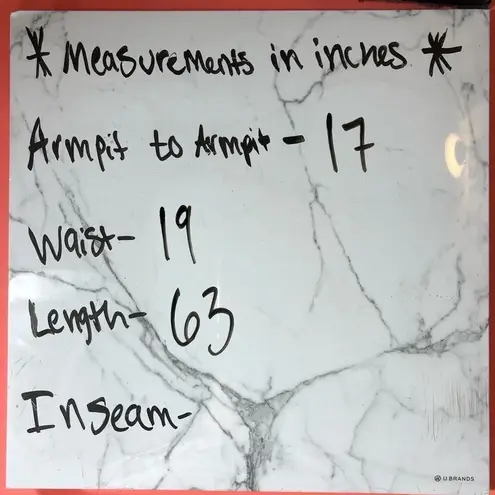 * Measurements in inches *
Armpit to Armpit - 17
Waist- 19
Length- 63
Inseam-
U BRANDS